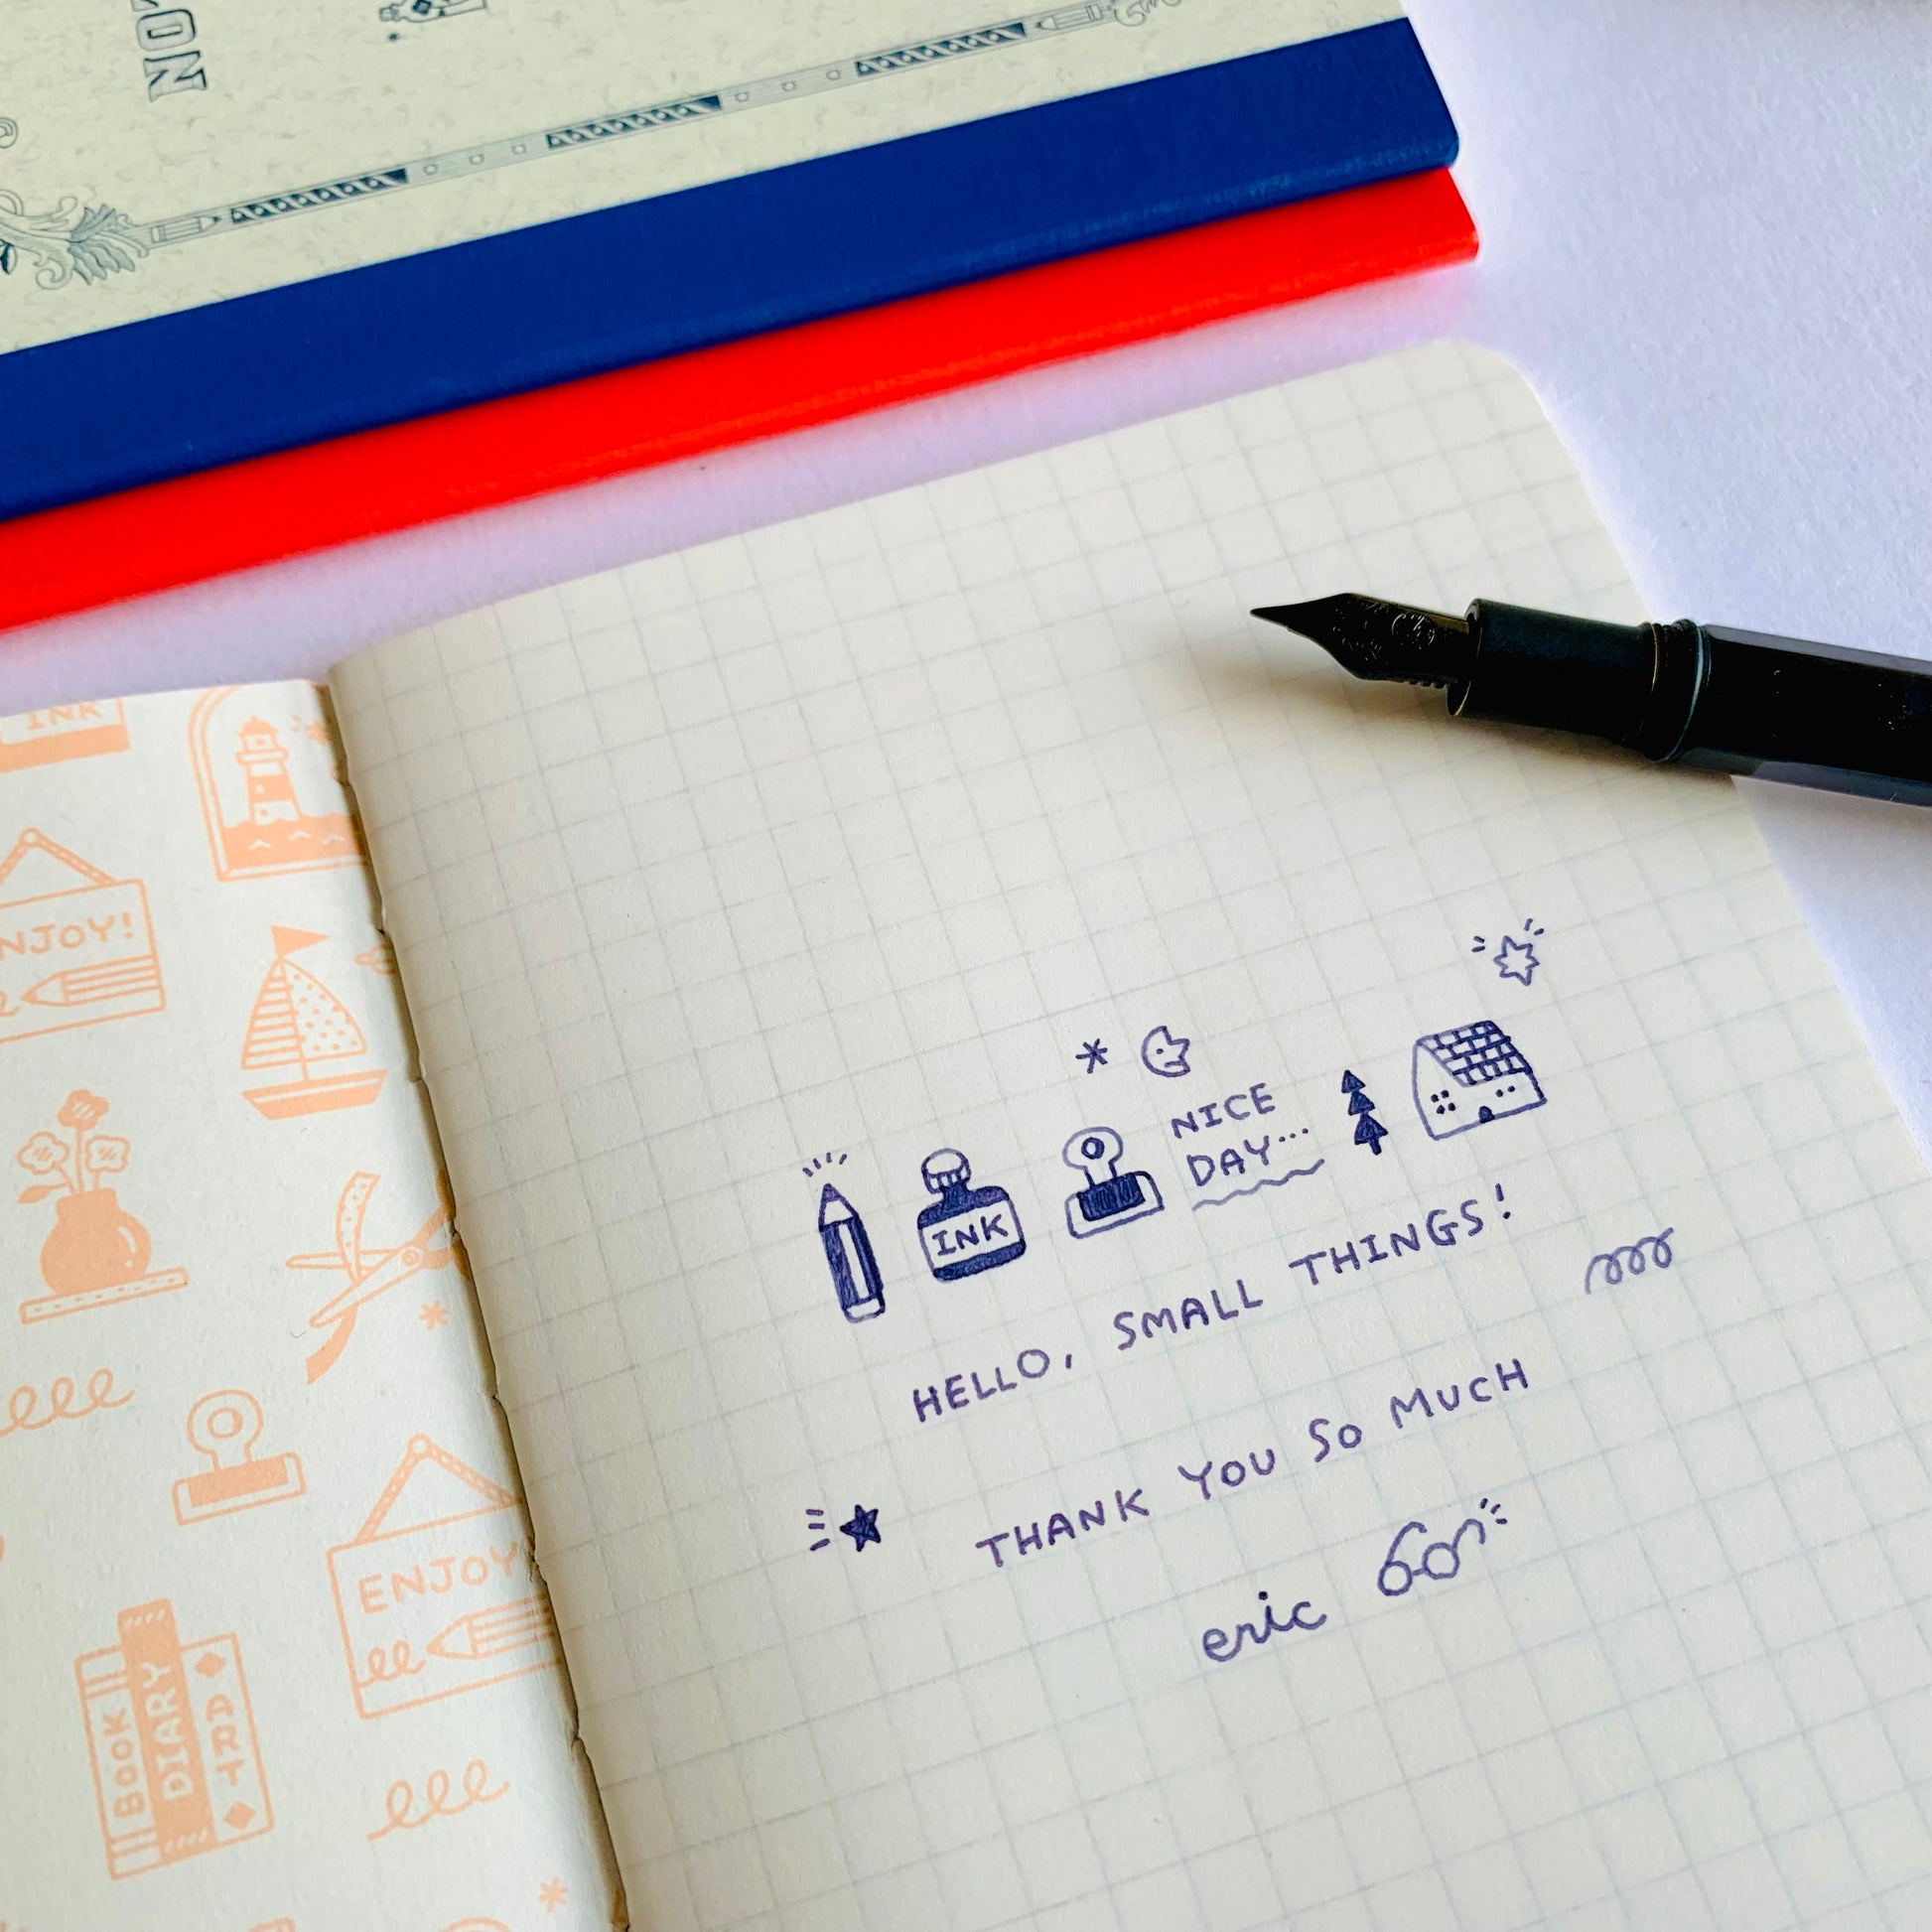 INK
ENJOY!
BOOK
DIARY
ART
INK
NICE
DAY...
HELLO, SMALL THINGS!
THANK YOU SO MUCH
eric